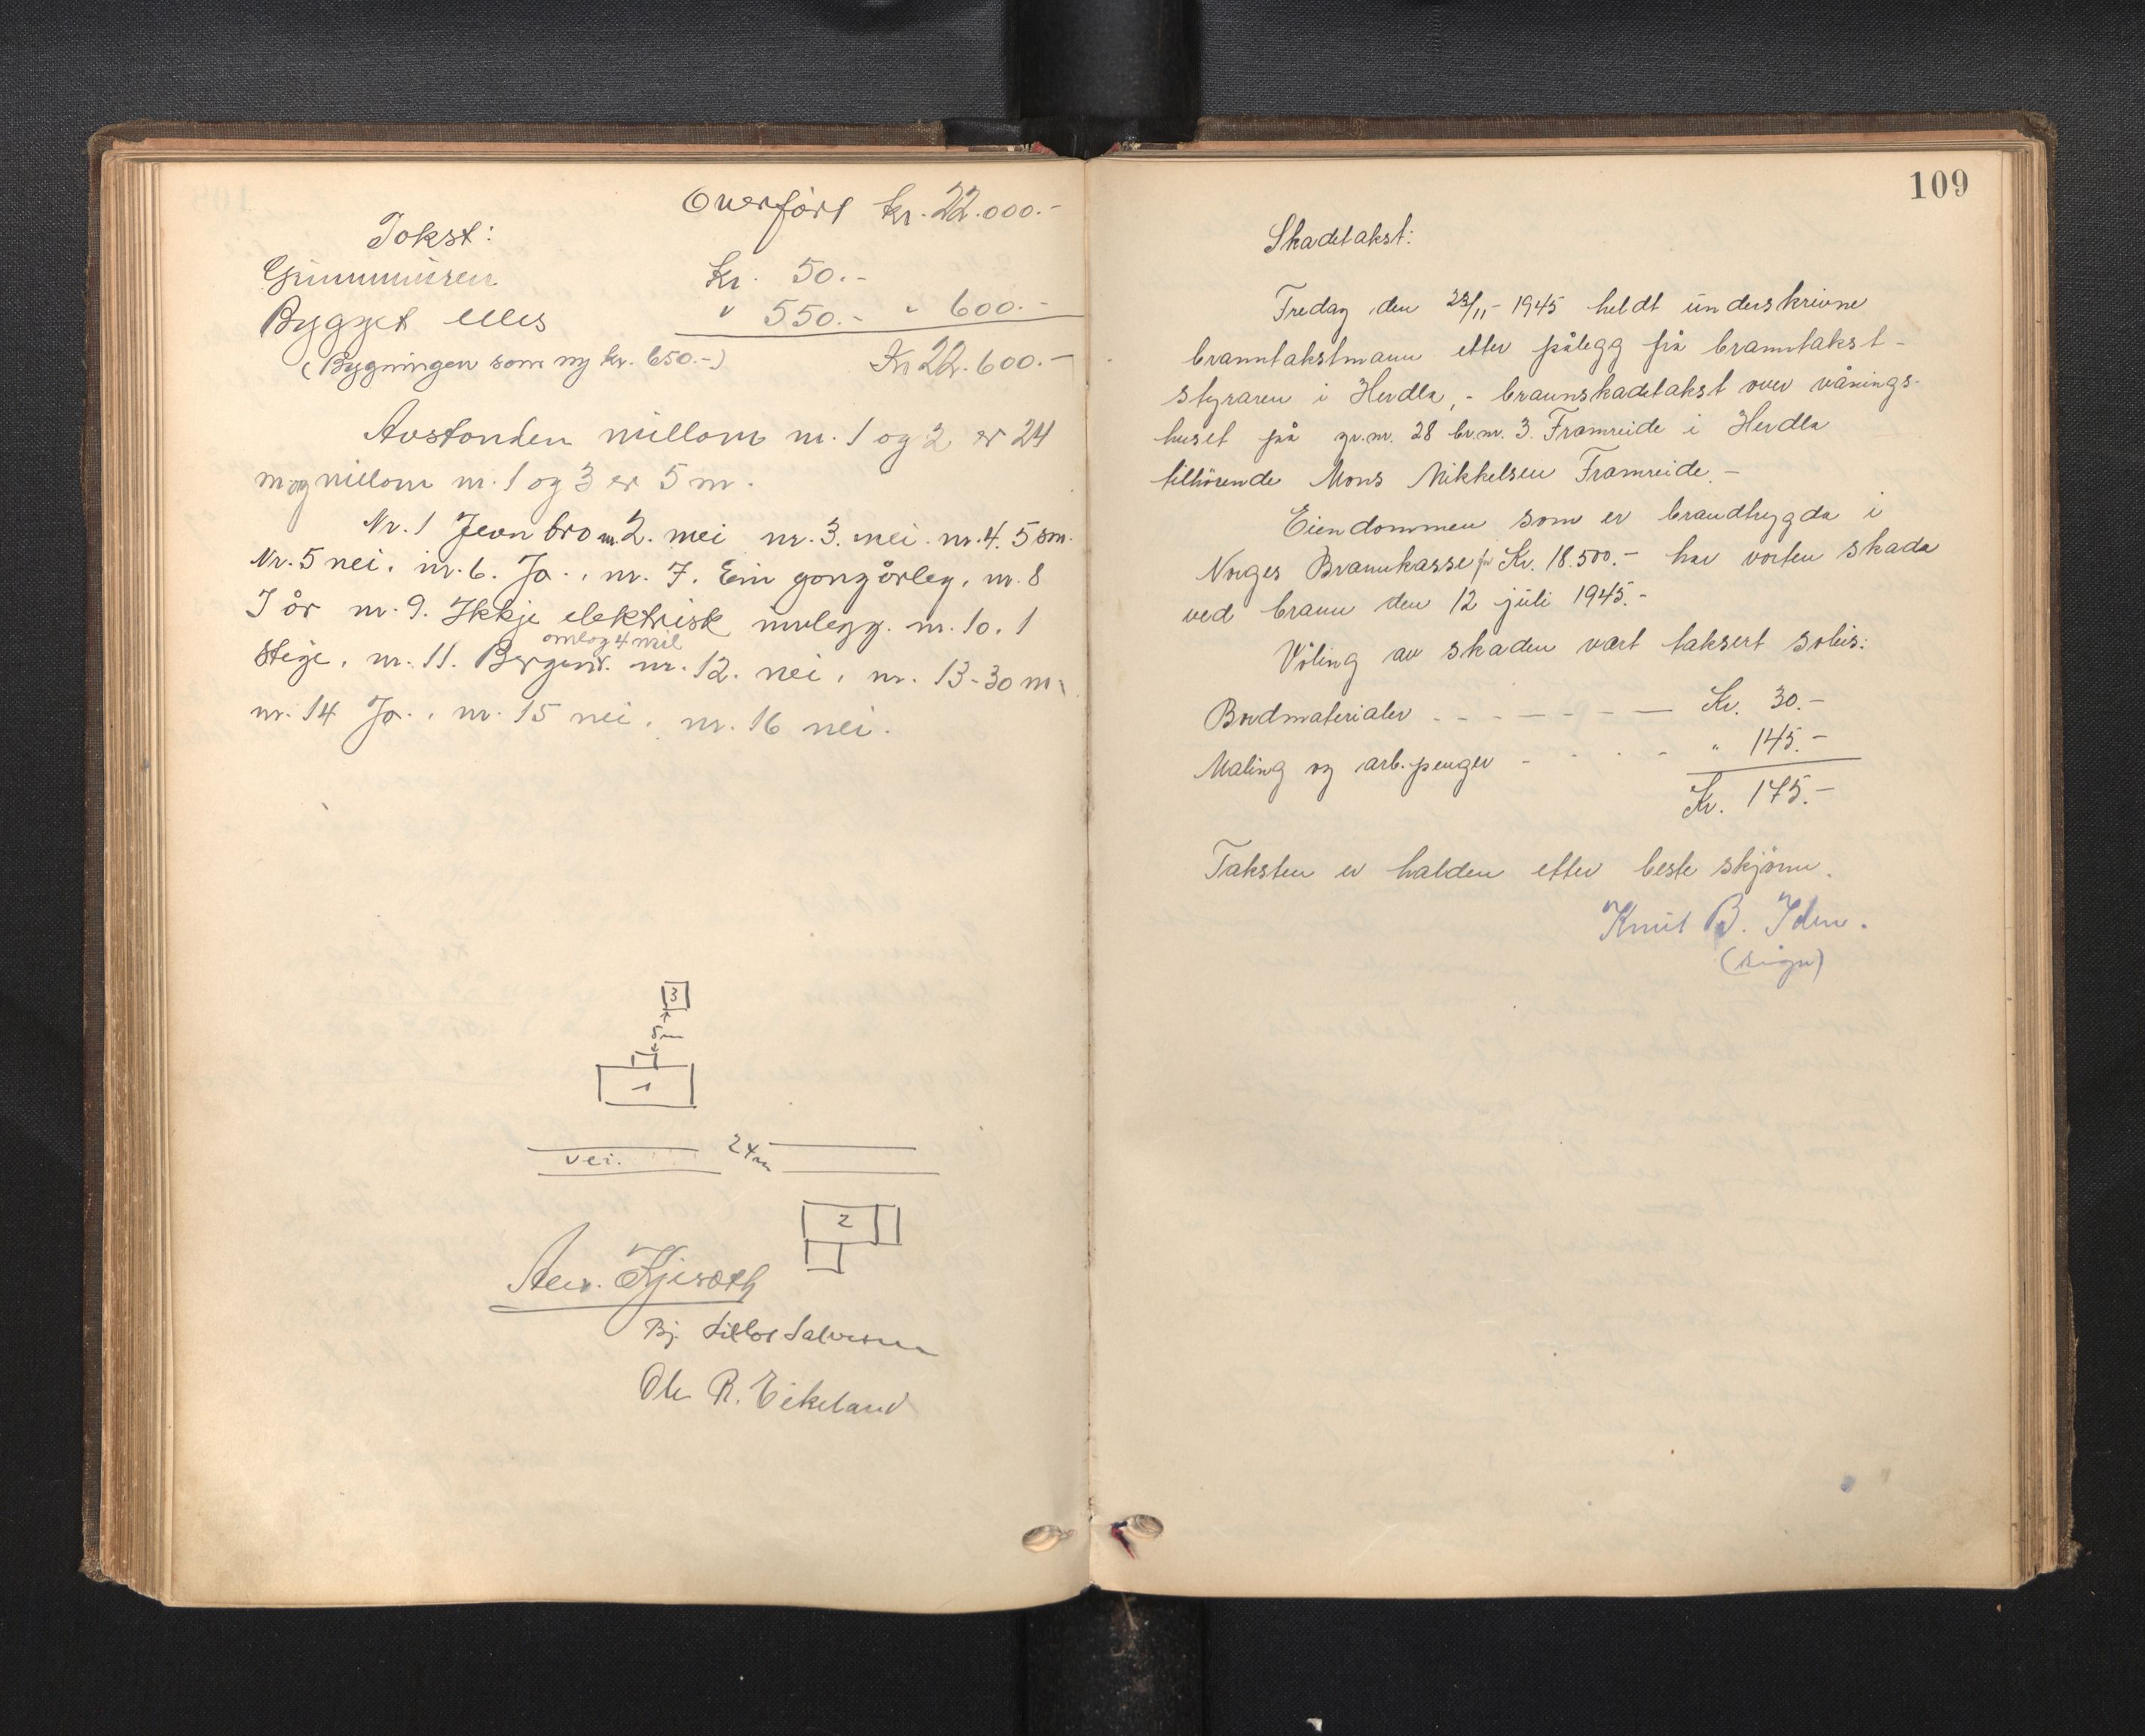 Overført kr. 22.000.-
Takst:
Grunnmuren Kr. 50.-
Bygget elles " 550.- " 600.-
(Bygningen som ny kr. 650.-) Kr 22.600.-
Avstanden millom nr. 1 og 2 er 24
m og millom nr. 1 og 3 er 5 m.
Nr. 1 Jevn bra nr. 2. nei nr. 3. nei. nr. 4. 5 sm.
Nr. 5 nei, nr. 6. Ja., nr. 7. Ein gong årleg, nr. 8
I år nr. 9. Ikkje elektrisk innlegg. nr. 10. 1
omlag 4 mil
Stige, nr. 11. Bergen. nr. 12. nei, nr. 13 - 30 m.
nr. 14 Ja., nr. 15 nei, nr. 16 nei.
3
5 m
1
24 m
vei.
2
Ole R. Eikeland
109
Skadetakst:
Fredag den 23/11 - 1945 heldt underskrivne
branntakstmann etter pålegg frå branntakst-
styraren i Herdla, - brannskadetakst over vånings-
huset på gr.nr. 28 br.nr. 3. Framreide i Herdla
tilhörende Mons Mikkelsen Framreide. -
Eiendommen som er brandtrygda i
Norges Brannkasse for Kr. 18.500.- har vorten skada
ved brann den 12 juli 1945. -
Völing av skaden vart taksert soleis:
Bordmaterialer - - - - - - - Kr. 30.-
Maling og arb.penger - - - - " 145.-
Kr. 175.-
Taksten er halden etter beste skjönn.
Knut B. Iden.
(sign)